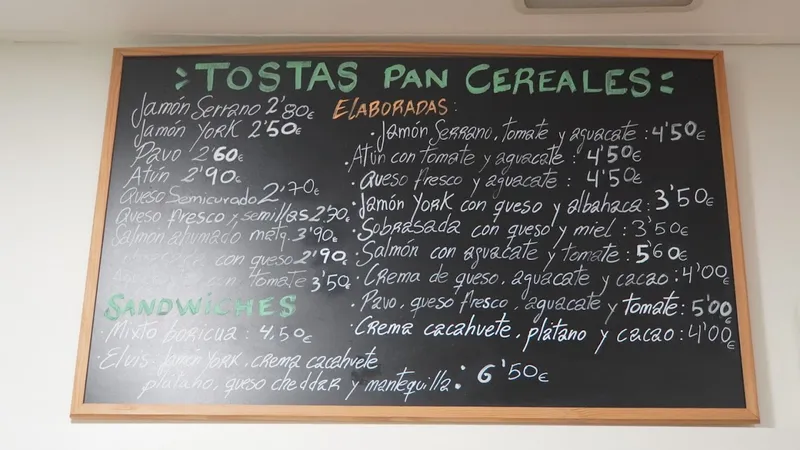 TOSTAS PAN CEREALES
Jamón Serrano 2'80€
Jamón York 2'50€
Pavo 2'60€
Atún 2'90€
Queso Semicurado 2'70€
Queso fresco y semillas 2'70€
Salmón ahumado matq. 3'90€
con queso 2'90€
con tomate 3'50€
ELABORADAS:
· Jamón Serrano, tomate y aguacate: 4'50€
· Atún con tomate y aguacate: 4'50€
· Queso fresco y aguacate: 4'50€
· Jamón York con queso y albahaca: 3'50€
· Sobrasada con queso y miel: 3'50€
· Salmón con aguacate y tomate: 5'60€
· Crema de queso, aguacate y cacao: 4'00€
· Pavo, queso fresco, aguacate y tomate: 5'00€
· Crema cacahvete, plátano y cacao: 4'00€
SANDWICHES
· Mixto boricua: 4,50€
· Elvis: Jamón York, crema cacahvete
plátano, queso cheddar y mantequilla: 6'50€